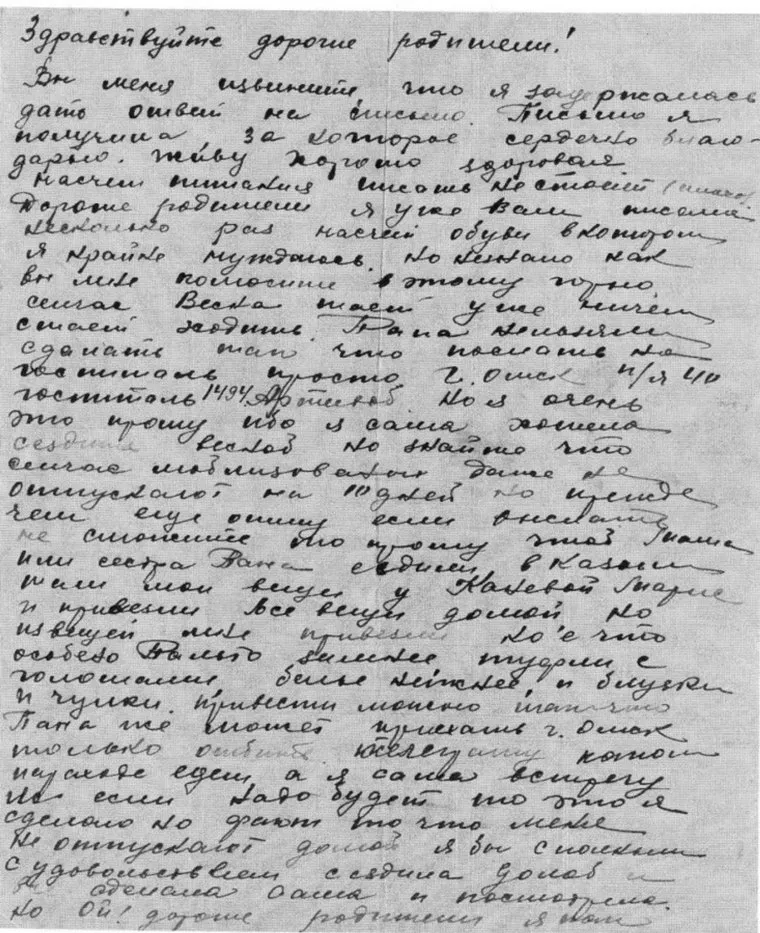 Здравствуйте дорогие родители!
Вы меня извините что я задержалась
дать ответ на письмо. Письмо я
получила за которое сердечно благо-
дарю. Живу хорошо здоровая
насчет питания писать не стоит
Дорогие родители я уже Вам писала
несколько раз насчет обуви в котором
я крайне нуждаюсь. но незнаю как
вы мне поможите в этому горю
сейчас Весна тает уже ничем
стает ходить. Папа нельзя ли
сделать так что послать на
госпиталь просто г. Омск п/я 40
госпиталь 1494 но я очень
это прошу ибо я сама хотела
съездить весной но знайте что
сейчас мобилизованы даже не
отпускают на 10 дней но прежде
чем еще опишу если выслать
не сможите то прошу чтоб Мама
или сестра Пана съездили в Казань
там мои вещи у Каневой Марие
и привезли все вещи домой но
из вещей мне привезли кое что
особено Пальто зимнее туфли с
голошами белье нижнее и блузки
и чулки. привести можно так что
Пана же может приехать г. Омск
только отбить телеграму каком
параходе едет а я сама встречу
Но если надо будет то это я
сделаю но факт то что меня
не отпускают домой я бы с полным
с удовольствием съездила домой и
сделала сама и посмотрела.
но Ой! дорогие родители я вам